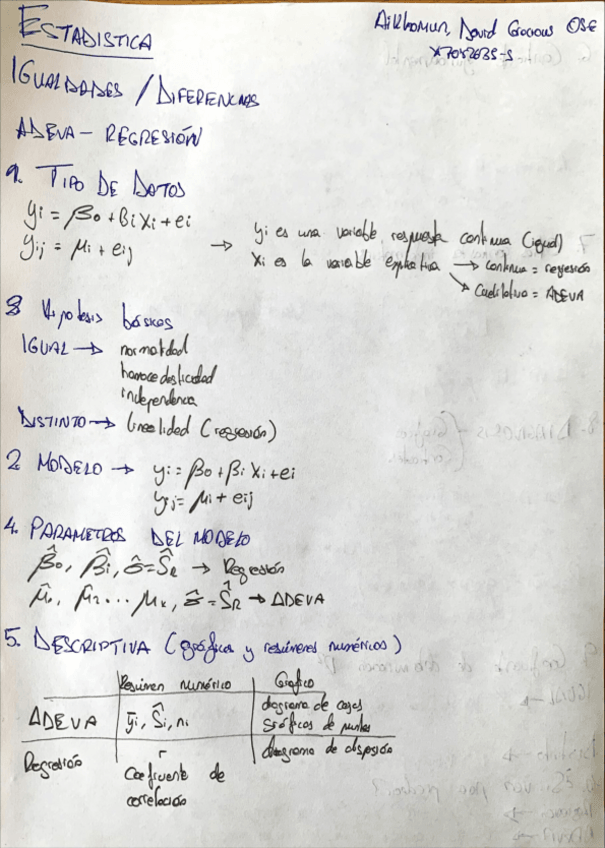 ESTADISTICA
IGUALDADES / DIFERENCIAS
ADEVA - REGRESIÓN
1. TIPO DE DATOS
yi = β0 + βi xi + ei
yij = μi + eij
→ yi es una variable respuesta continua (igual)
xi es la variable explicativa → continua = regresión
↘ Cualitativa = ADEVA
3 Hipotesis básicas
IGUAL → normalidad
homocedasticidad
independencia
DISTINTO → linealidad (regresión)
2. MODELO → yi = β0 + βi xi + ei
yij = μi + eij
4. PARAMETROS DEL MODELO
β̂0, β̂i, σ̂ = ŜR → Regresión
μ̂1, μ̂2 ... μk, σ̂ = ŜR → ADEVA
5. DESCRIPTIVA (gráficos y resúmenes numéricos)
Resumen numérico Grafico
ADEVA ȳi, Ŝi, ni diagrama de cajas
gráficos de puntos
Regresión r diagrama de dispersión
Coeficiente de
correlación